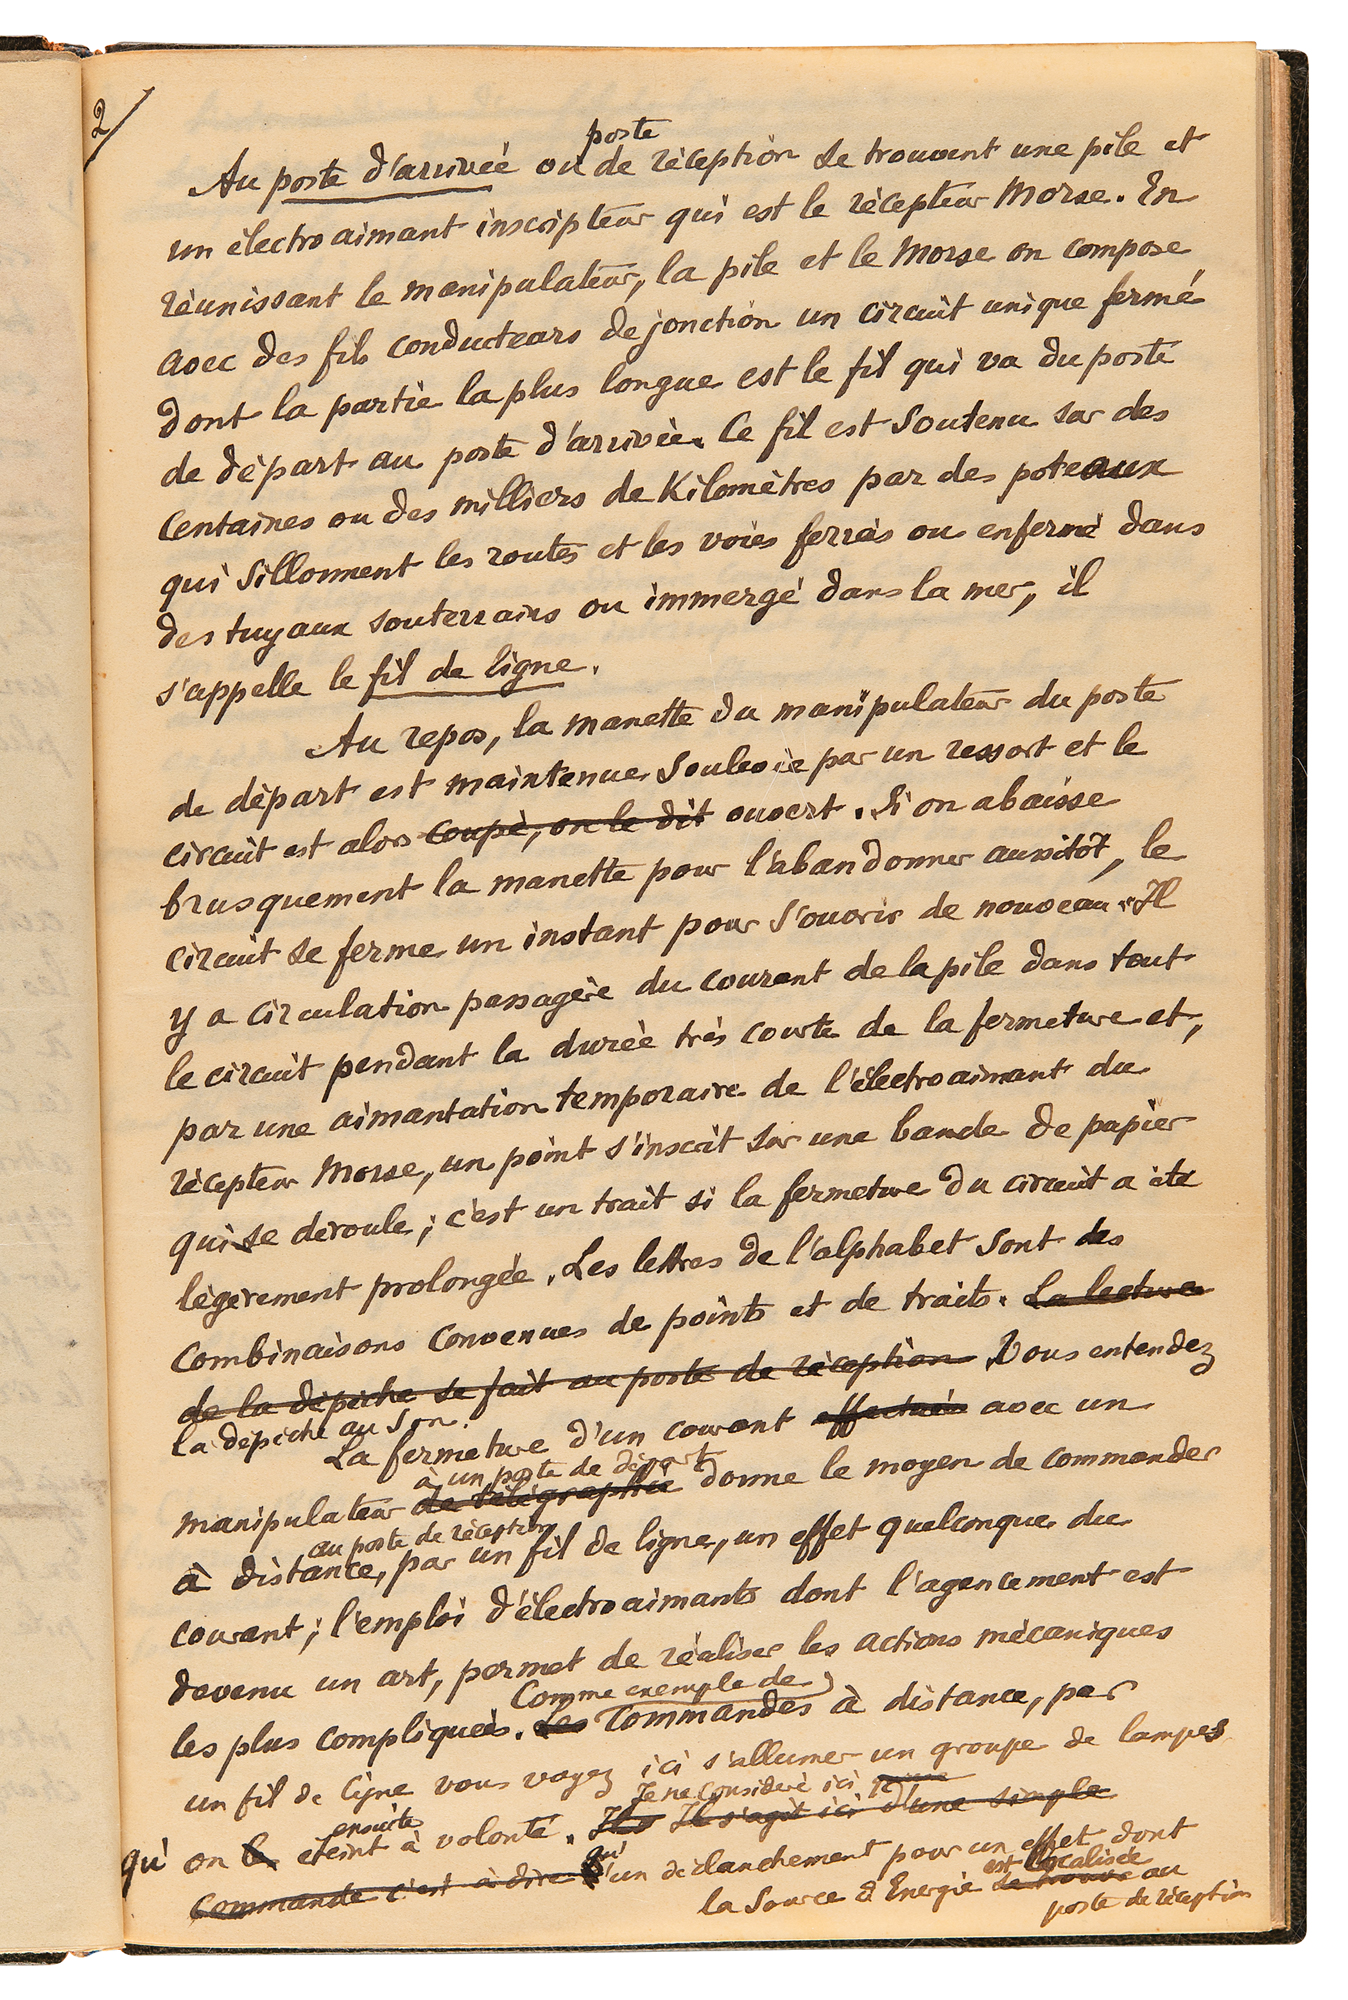 2/
poste
Au poste d'arrivée ou de réception se trouvent une pile et
un électroaimant inscripteur qui est le récepteur Morse. En
réunissant le manipulateur, la pile et le Morse on compose
avec des fils conducteurs de jonction un circuit unique fermé
dont la partie la plus longue est le fil qui va du poste
de départ au poste d'arrivée. Ce fil est soutenu sur des
centaines ou des milliers de Kilomètres par des poteaux
qui sillonnent les routes et les voies ferrées ou enfermé dans
des tuyaux souterrains ou immergé dans la mer, il
s'appelle le fil de ligne.
Au repos, la manette du manipulateur du poste
de départ est maintenue soulevée par un ressort et le
circuit est alors coupé, on le dit ouvert. Si on abaisse
brusquement la manette pour l'abandonner aussitôt, le
circuit se ferme un instant pour s'ouvrir de nouveau. Il
y a circulation passagère du courant de la pile dans tout
le circuit pendant la durée très courte de la fermeture et,
par une aimantation temporaire de l'électroaimant du
récepteur Morse, un point s'inscrit sur une bande de papier
qui se déroule; c'est un trait si la fermeture du circuit a été
légèrement prolongée. Les lettres de l'alphabet sont des
combinaisons convenues de points et de traits. La lecture
de la dépêche se fait au poste de réception. Vous entendez
la dépêche au son.
La fermeture d'un courant effectuée avec un
à un poste de départ
manipulateur de télégraphie donne le moyen de commander
au poste de réception
à distance, par un fil de ligne, un effet quelconque du
courant; l'emploi d'électroaimants dont l'agencement est
devenu un art, permet de réaliser les actions mécaniques
Comme exemple de
les plus compliquées. Les Commandes à distance, par
un fil de ligne vous voyez ici s'allumer un groupe de lampes
Je ne considère ici
ensuite
qu' on le éteint à volonté. Il s'agit ici d'une simple
commande c'est à dire qu'un déclanchement pour un effet dont
est localisée
la source d'Energie se trouve au
poste de réception